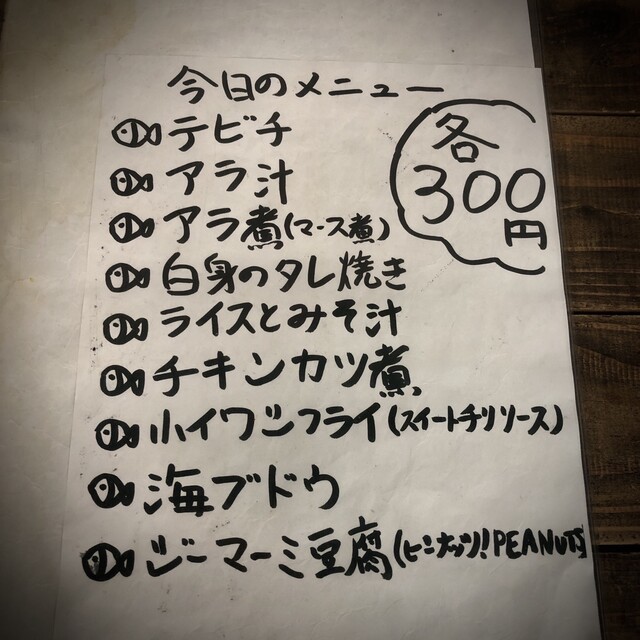 今日のメニュー
各
300
円
テビチ
アラ汁
アラ煮(マース煮)
白身のタレ焼き
ライスとみそ汁
チキンカツ煮
小イワシフライ(スイートチリソース)
海ブドウ
ジーマーミ豆腐(ピーナッツ!PEANUTS